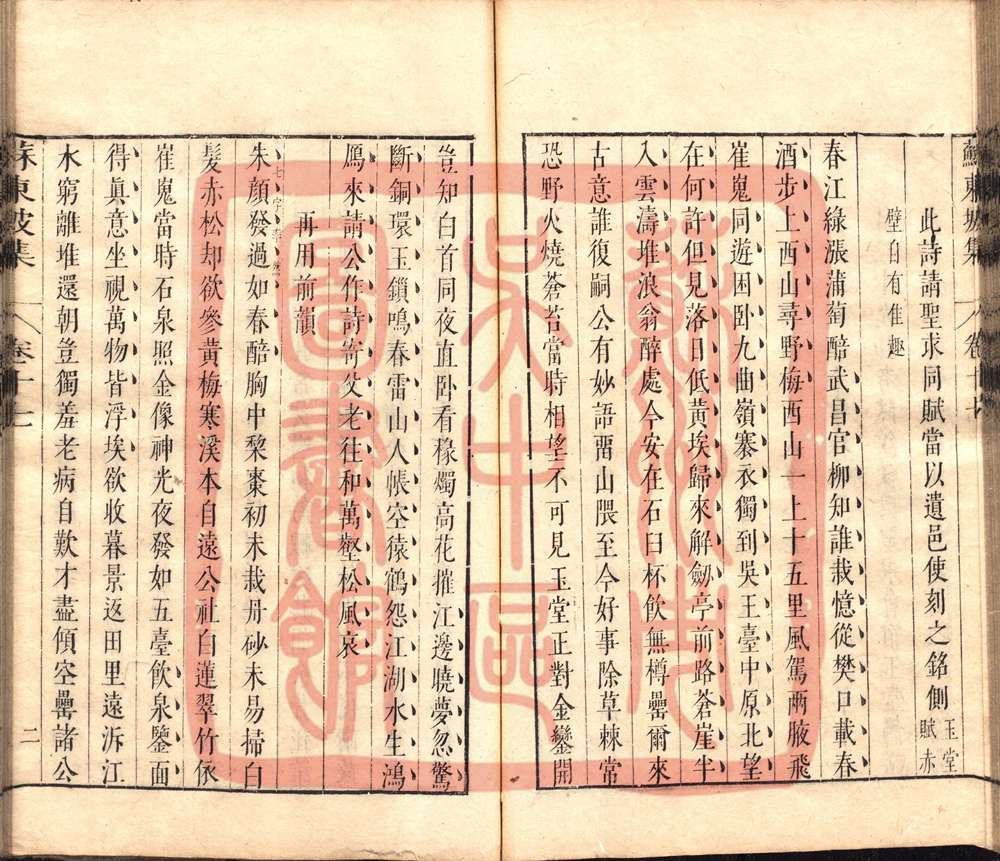 蘇東坡集 卷十七
此詩請聖求同賦當以遺邑使刻之銘側 玉堂賦赤
壁自有佳趣
春江綠漲蒲萄醅武昌官柳知誰栽憶從樊口載春
酒步上西山尋野梅西山一上十五里風駕兩腋飛
崔嵬同遊困卧九曲嶺褰衣獨到吳王臺中原北望
在何許但見落日低黃埃歸來解劒亭前路蒼崖半
入雲濤堆浪翁醉處今安在石臼杯飲無樽罍爾來
古意誰復嗣公有妙語畱山隈至今好事除草棘常
恐野火燒蒼苔當時相望不可見玉堂正對金鑾開
豈知白首同夜直卧看椽燭高花摧江邊曉夢忽驚
斷銅環玉鎖鳴春雷山人帳空猿鶴怨江湖水生鴻
鴈來請公作詩寄父老往和萬壑松風哀
再用前韻
朱顏發過如春醅胸中黎棗初未栽丹砂未易掃白
髮赤松却欲參黃梅寒溪本自遠公社白蓮翠竹依
崔嵬當時石泉照金像神光夜發如五臺飲泉鑒面
得眞意坐視萬物皆浮埃欲收暮景返田里遠泝江
水窮離堆還朝豈獨羞老病自歎才盡傾空罍諸公
蘇東坡集 卷十七 二
蘇州市
吳中區
圖書館